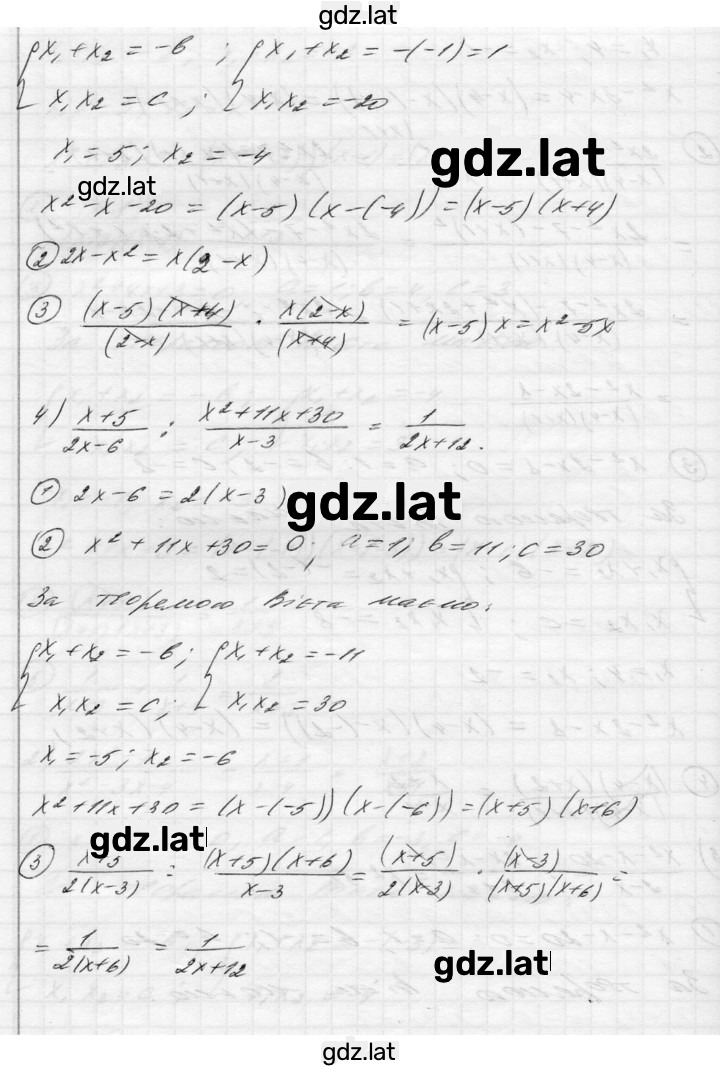 gdz.lat
{ x₁ + x₂ = -b ; { x₁ + x₂ = -(-1) = 1
x₁x₂ = c ; x₁x₂ = -20
x₁ = 5 ; x₂ = -4
gdz.lat
gdz.lat
x² - x - 20 = (x-5)(x-(-4)) = (x-5)(x+4)
② 2x - x² = x(2-x)
③ (x-5)(x+4)/(2-x) · x(2-x)/(x+4) = (x-5)x = x² - 5x
4) (x+5)/(2x-6) : (x²+11x+30)/(x-3) = 1/(2x+12).
① 2x-6 = 2(x-3)
gdz.lat
② x² + 11x + 30 = 0; a=1; b=11; c=30
За теоремою Вієта маємо:
{ x₁ + x₂ = -b ; { x₁ + x₂ = -11
x₁x₂ = c ; x₁x₂ = 30
x₁ = -5 ; x₂ = -6
x² + 11x + 30 = (x-(-5))(x-(-6)) = (x+5)(x+6)
gdz.lat
③ (x+5)/2(x-3) : (x+5)(x+6)/(x-3) = (x+5)/2(x-3) · (x-3)/(x+5)(x+6) =
= 1/2(x+6) = 1/(2x+12)
gdz.lat
gdz.lat